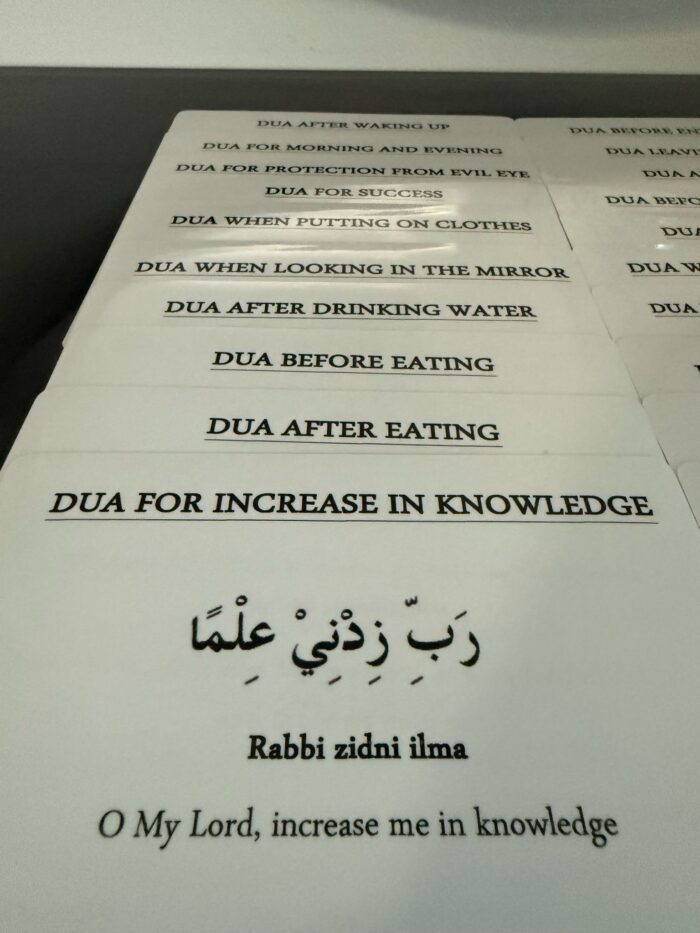 DUA AFTER WAKING UP
DUA FOR MORNING AND EVENING
DUA FOR PROTECTION FROM EVIL EYE
DUA FOR SUCCESS
DUA WHEN PUTTING ON CLOTHES
DUA WHEN LOOKING IN THE MIRROR
DUA AFTER DRINKING WATER
DUA BEFORE EATING
DUA AFTER EATING
DUA FOR INCREASE IN KNOWLEDGE
رَبِّ زِدْنِيْ عِلْمًا
Rabbi zidni ilma
O My Lord, increase me in knowledge
DUA BEFORE
DUA
DUA
DUA
DUA
DUA
DUA